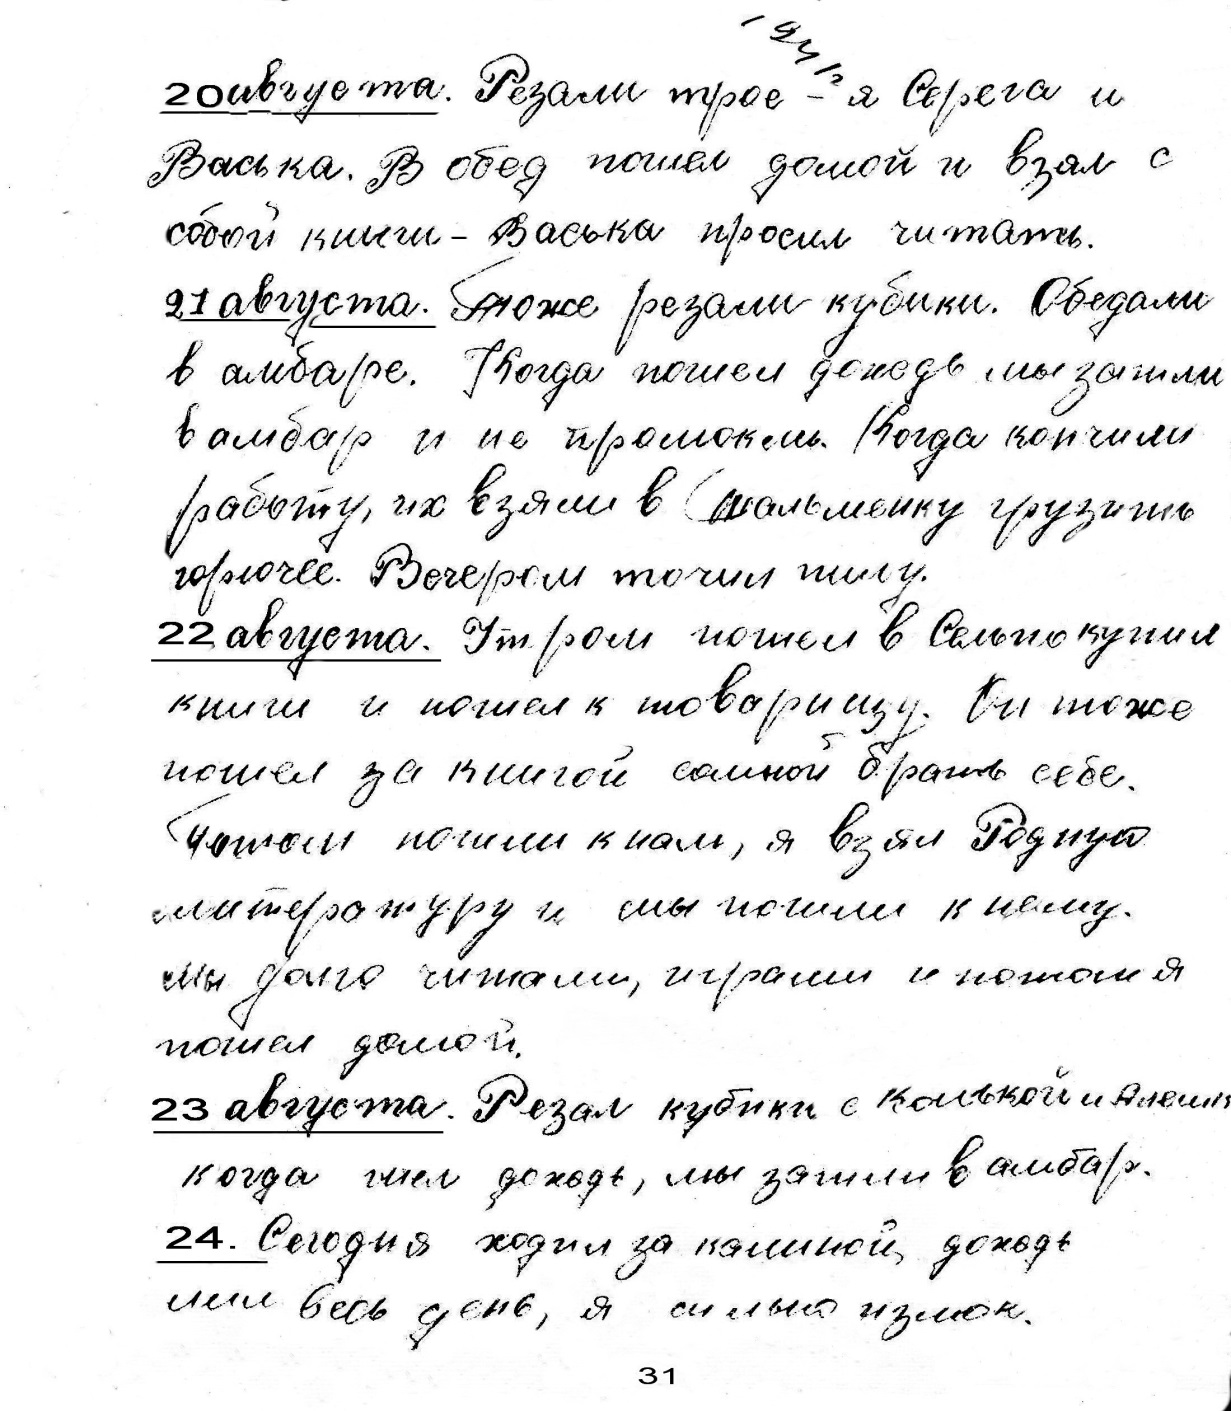 194 г.
20 августа. Резали трое - я Серега и
Васька. В обед пошел домой и взял с
собой книги - Васька просил читать.
21 августа. Тоже резали кубики. Обедали
в амбаре. Когда пошел дождь мы зашли
в амбар и не промокли. Когда кончили
работу, их взяли в Тальменку грузить
горючее. Вечером точил пилу.
22 августа. Утром пошел в Сельпо купил
книги и пошел к товарищу. Он тоже
пошел за книгой со мной брать себе.
Потом пошли к нам, я взял Родную
литературу и мы пошли к нему.
Мы долго читали, играли и потом я
пошел домой.
23 августа. Резал кубики с Колькой и
когда шел дождь, мы зашли в амбар.
24. Сегодня ходил за калиной, дождь
шел весь день, я сильно измок.
31